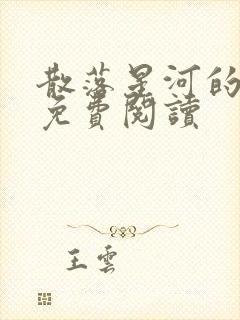 散落星河的
免費閱讀
王雲